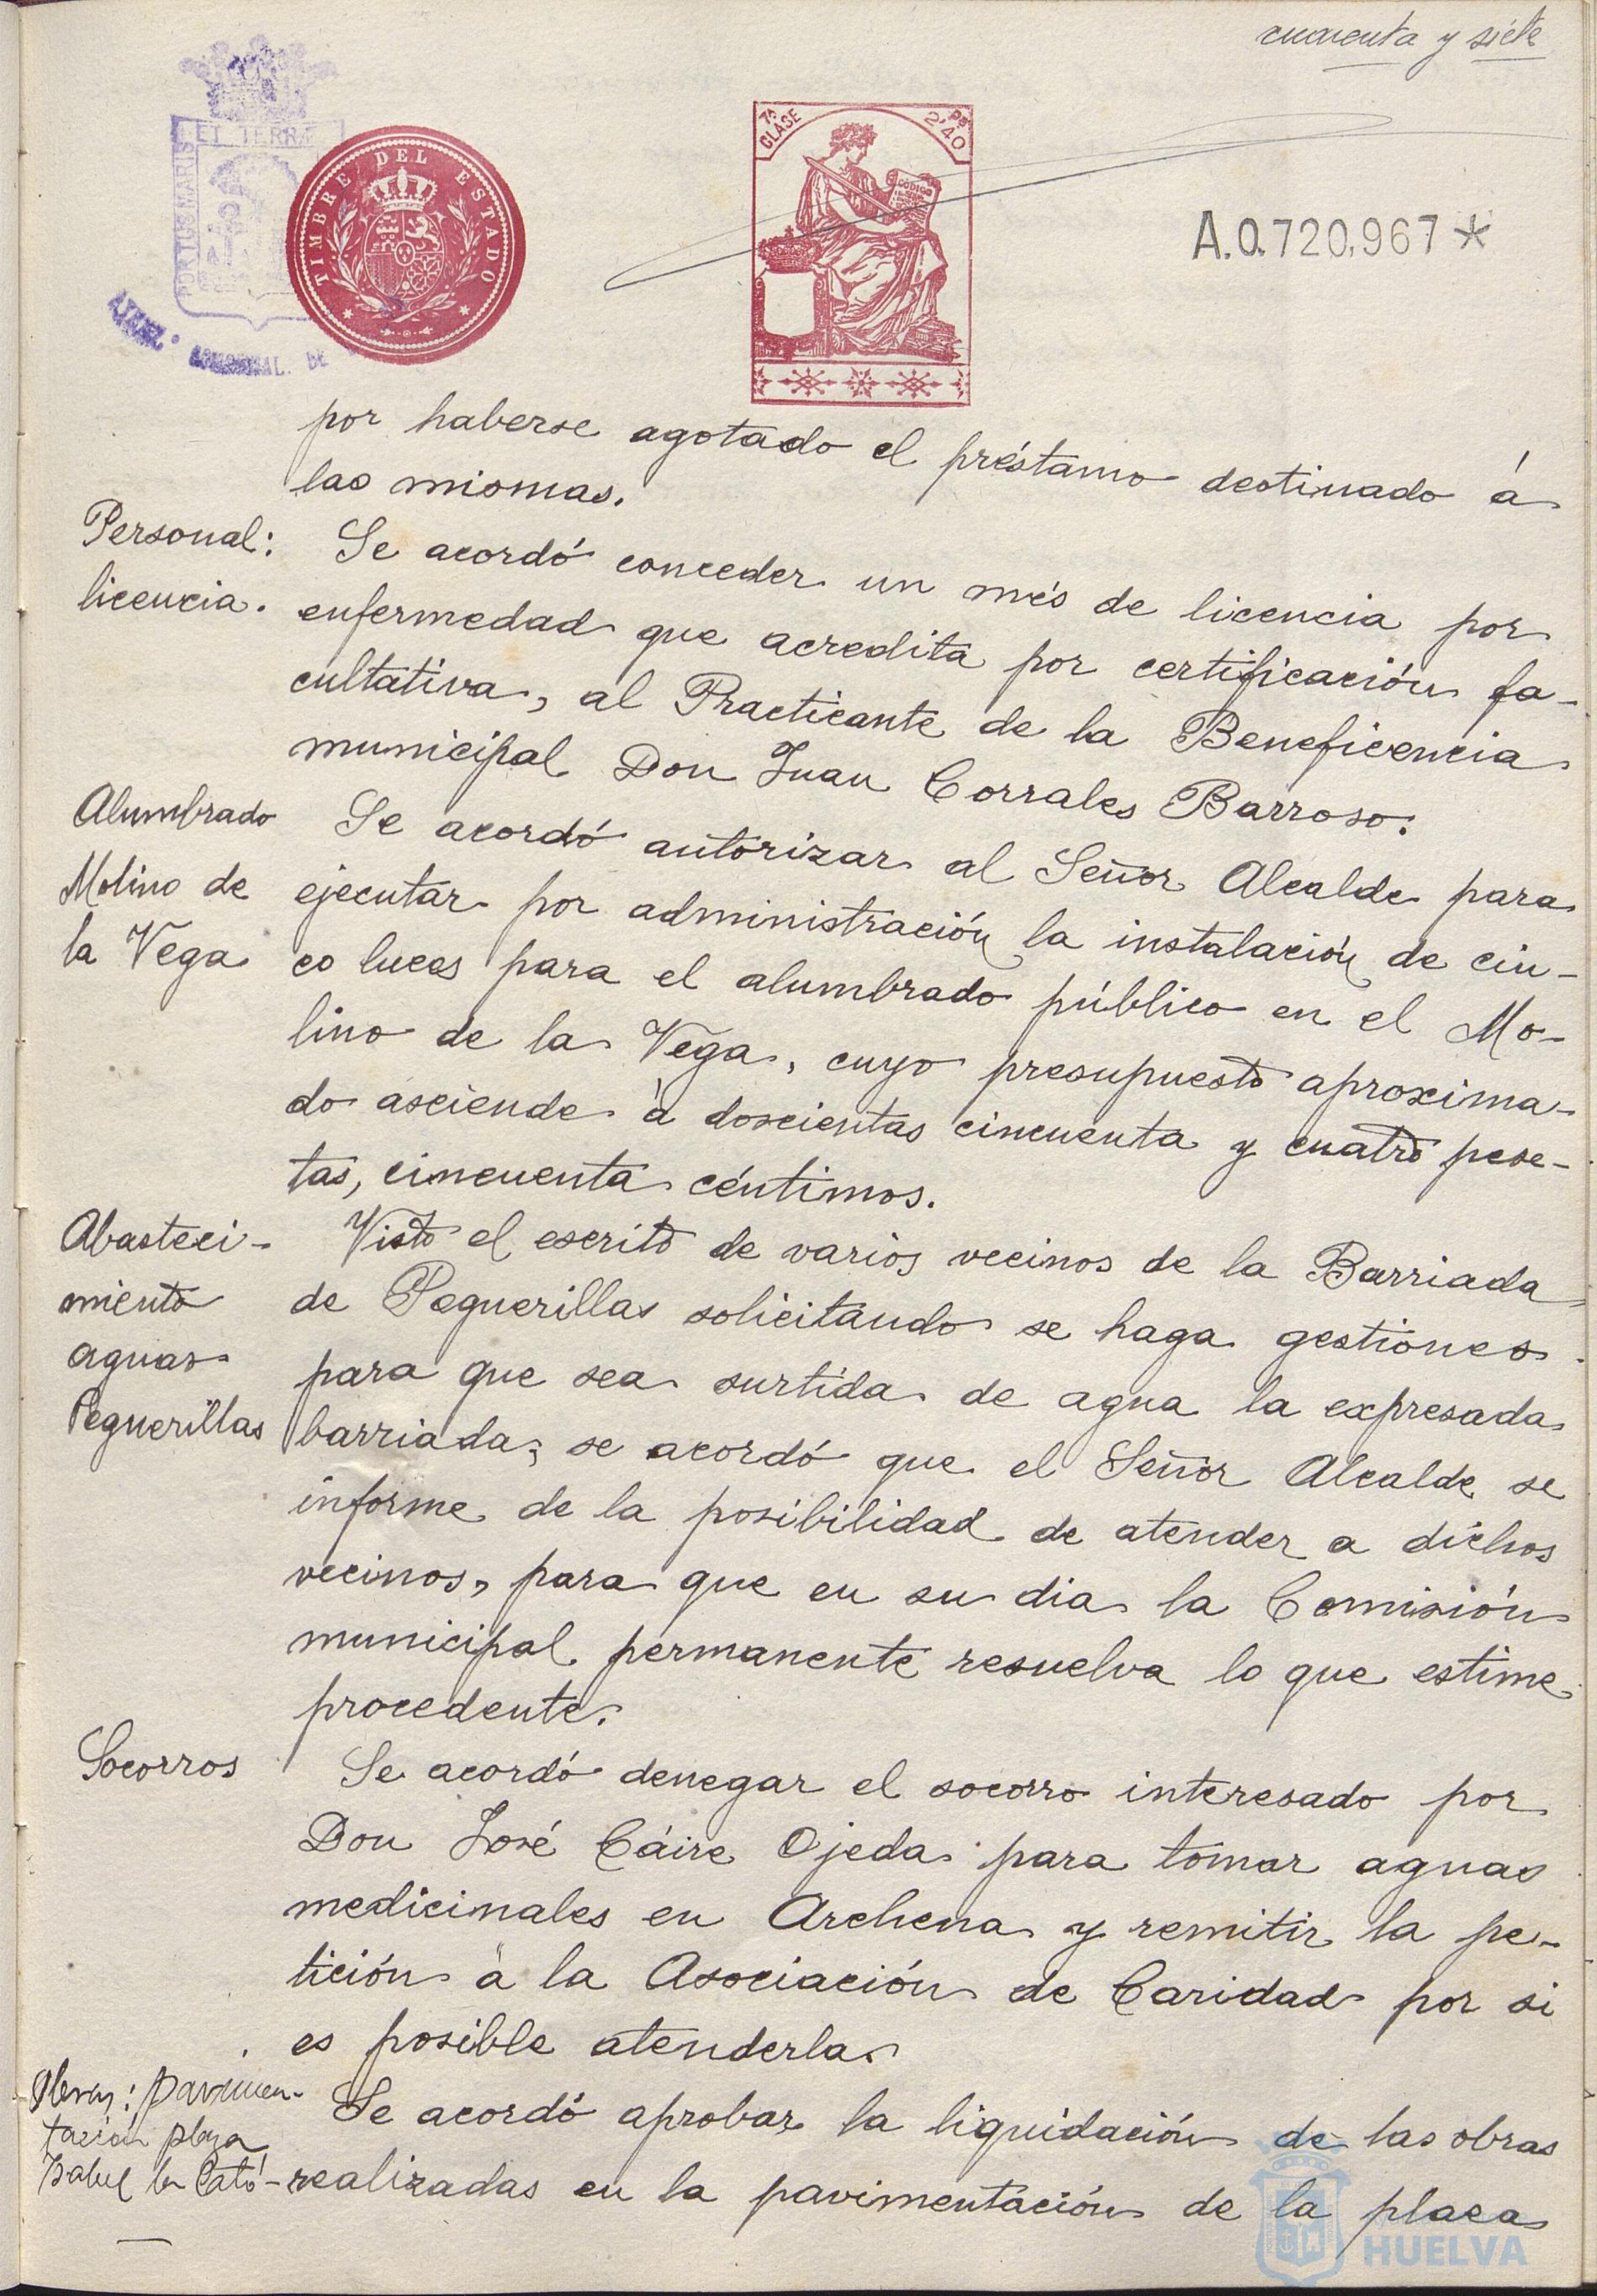 cuarenta y siete
ET TERRÆ
PORTUS MARIS
TIMBRE DEL ESTADO
7ª CLASE
Ps 2'40
CÓDIGO
A.0.720,967*
por haberse agotado el préstamo destinado á
las mismas.
Personal:
licencia.
Se acordó conceder un més de licencia por
enfermedad que acredita por certificación fa-
cultativa, al Practicante de la Beneficencia
municipal Don Juan Corrales Barroso.
Alumbrado
Molino de
la Vega
Se acordó autorizar al Señor Alcalde para
ejecutar por administración la instalación de cin-
co luces para el alumbrado público en el Mo-
lino de la Vega, cuyo presupuesto aproxima-
do asciende á doscientas cincuenta y cuatro pese-
tas, cincuenta céntimos.
Abasteci-
miento
aguas
Peguerillas
Visto el escrito de varios vecinos de la Barriada
de Peguerillas solicitando se haga gestiones
para que sea surtida de agua la expresada
barriada; se acordó que el Señor Alcalde se
informe de la posibilidad de atender a dichos
vecinos, para que en su dia la Comisión
municipal permanente resuelva lo que estime
procedente.
Socorros
Se acordó denegar el socorro interesado por
Don José Cáire Ojeda para tomar aguas
medicinales en Archena y remitir la pe-
tición á la Asociación de Caridad por si
es posible atenderla.
Obras: pavimen-
tación plaza
Isabel la Cató-
Se acordó aprobar la liquidación de las obras
realizadas en la pavimentación de la plaza
HUELVA